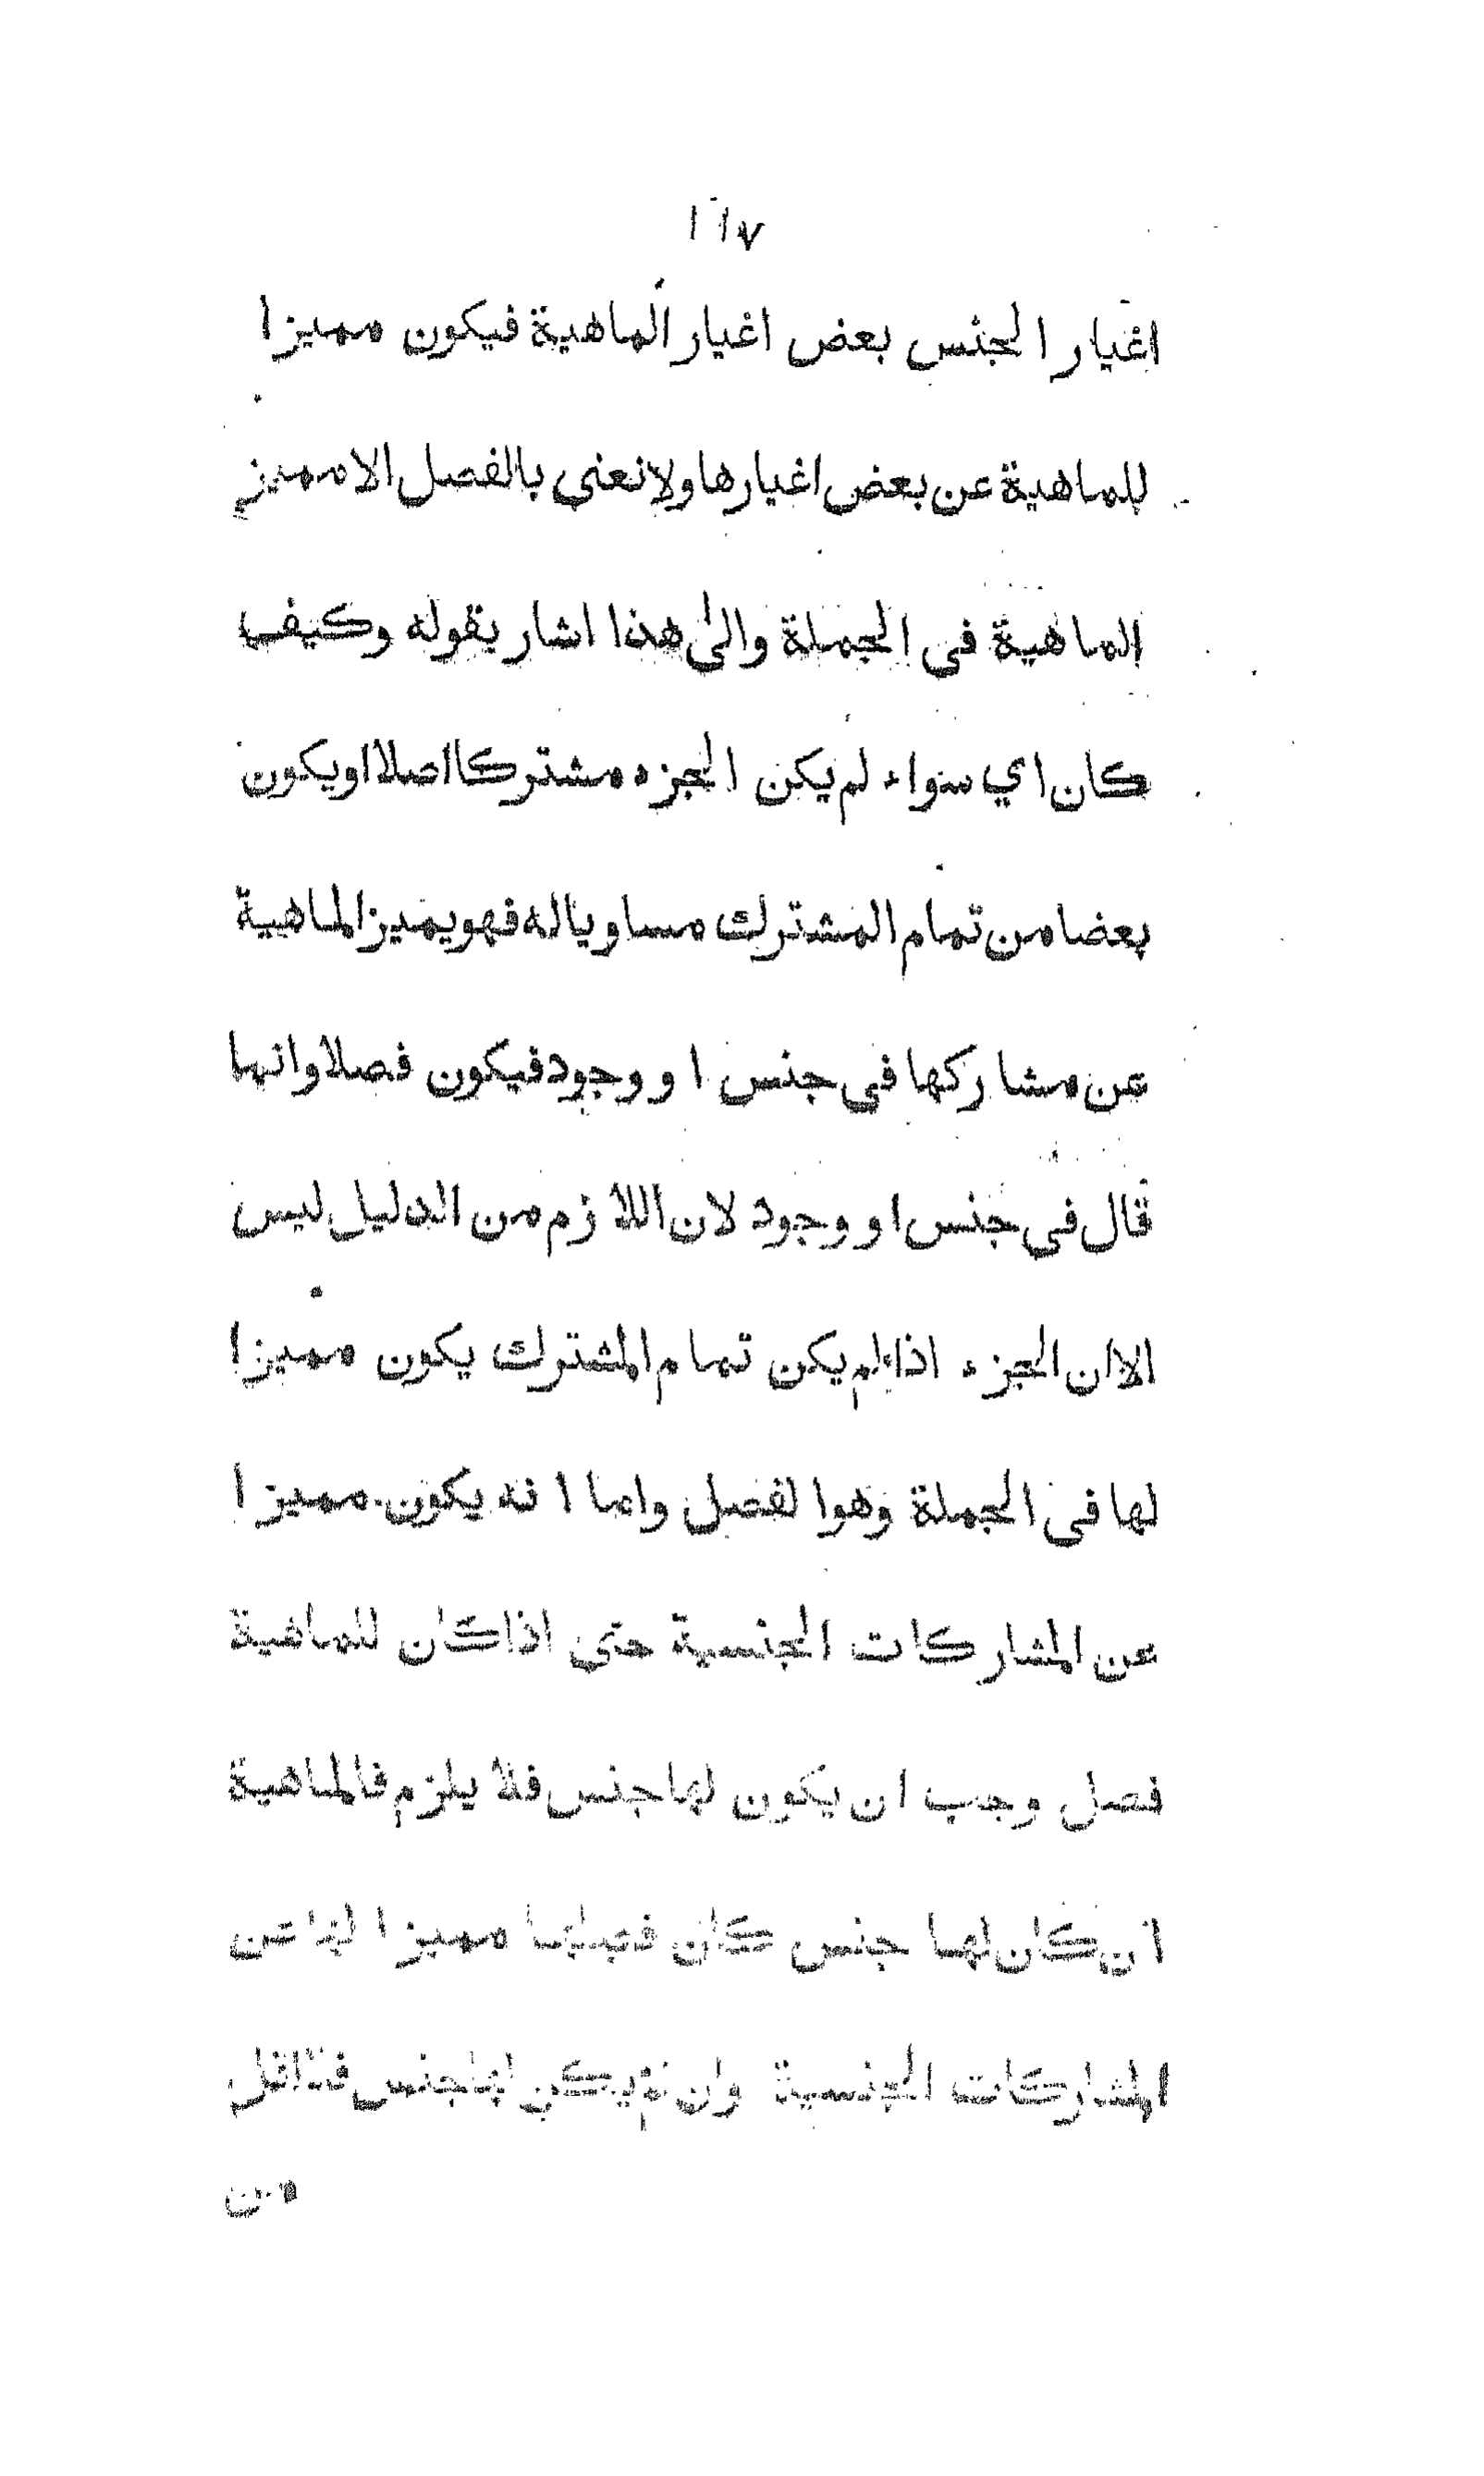 ١١٧
اغيار الجنس بعض اغيار الماهية فيكون مميزا
للماهية عن بعض اغيارها ولا نعني بالفصل الا مميز
الماهية في الجملة والى هذا اشار بقوله وكيف
كان اي سواء لم يكن الجزء مشتركا اصلا او يكون
بعضا من تمام المشترك مساويا له فهو يميز الماهية
عن مشاركها في جنس او وجود فيكون فصلا وانما
قال في جنس او وجود لان اللازم من الدليل ليس
الا ان الجزء اذا لم يكن تمام المشترك يكون مميزا
لها في الجملة وهو الفصل واما انه يكون مميزا
عن المشاركات الجنسية حتى اذا كان للماهية
فصل وجب ان يكون لها جنس فلا يلزم فالماهية
ان كان لها جنس كان فصلها مميزا لها عن
المشاركات الجنسية وان لم يكن لها جنس فلا اقل
من